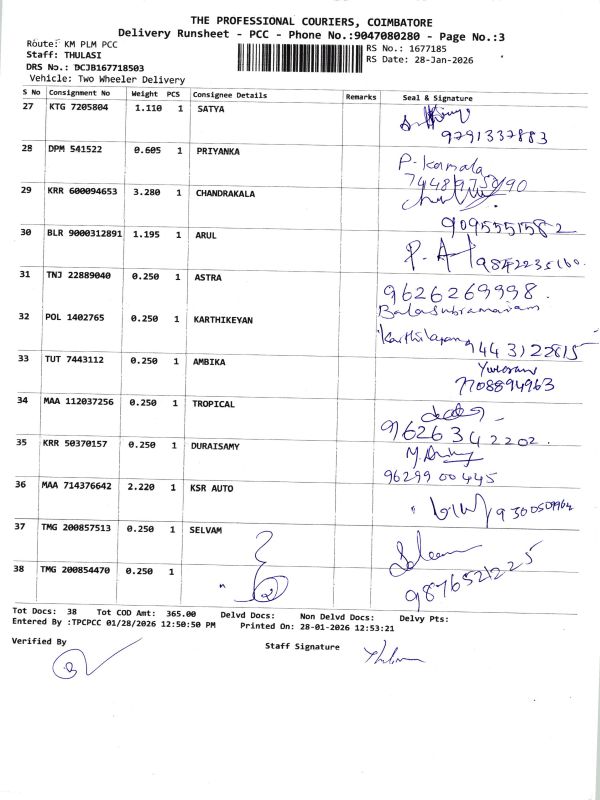 THE PROFESSIONAL COURIERS, COIMBATORE
Delivery Runsheet - PCC - Phone No.:9047080280 - Page No.:3
Route: KM PLM PCC
Staff: THULASI
DRS No.: DCJB167718503
Vehicle: Two Wheeler Delivery
RS No.: 1677185
RS Date: 28-Jan-2026
S No Consignment No Weight PCS Consignee Details Remarks Seal & Signature
27 KTG 7205804 1.110 1 SATYA
9791337883
28 DPM 541522 0.605 1 PRIYANKA
P. Kamala
29 KRR 600094653 3.280 1 CHANDRAKALA
9095551582
30 BLR 9000312891 1.195 1 ARUL
P. A
9842235160.
31 TNJ 22889040 0.250 1 ASTRA
9626269998.
Balasubramaniam
32 POL 1402765 0.250 1 KARTHIKEYAN
9443122815
33 TUT 7443112 0.250 1 AMBIKA
7708894963
34 MAA 112037256 0.250 1 TROPICAL
9626342202.
35 KRR 50370157 0.250 1 DURAISAMY
9629900445
36 MAA 714376642 2.220 1 KSR AUTO
37 TMG 200857513 0.250 1 SELVAM
38 TMG 200854470 0.250 1
9876521225
Tot Docs: 38 Tot COD Amt: 365.00 Delvd Docs: Non Delvd Docs: Delvy Pts:
Entered By :TPCPCC 01/28/2026 12:50:50 PM Printed On: 28-01-2026 12:53:21
Verified By
Staff Signature